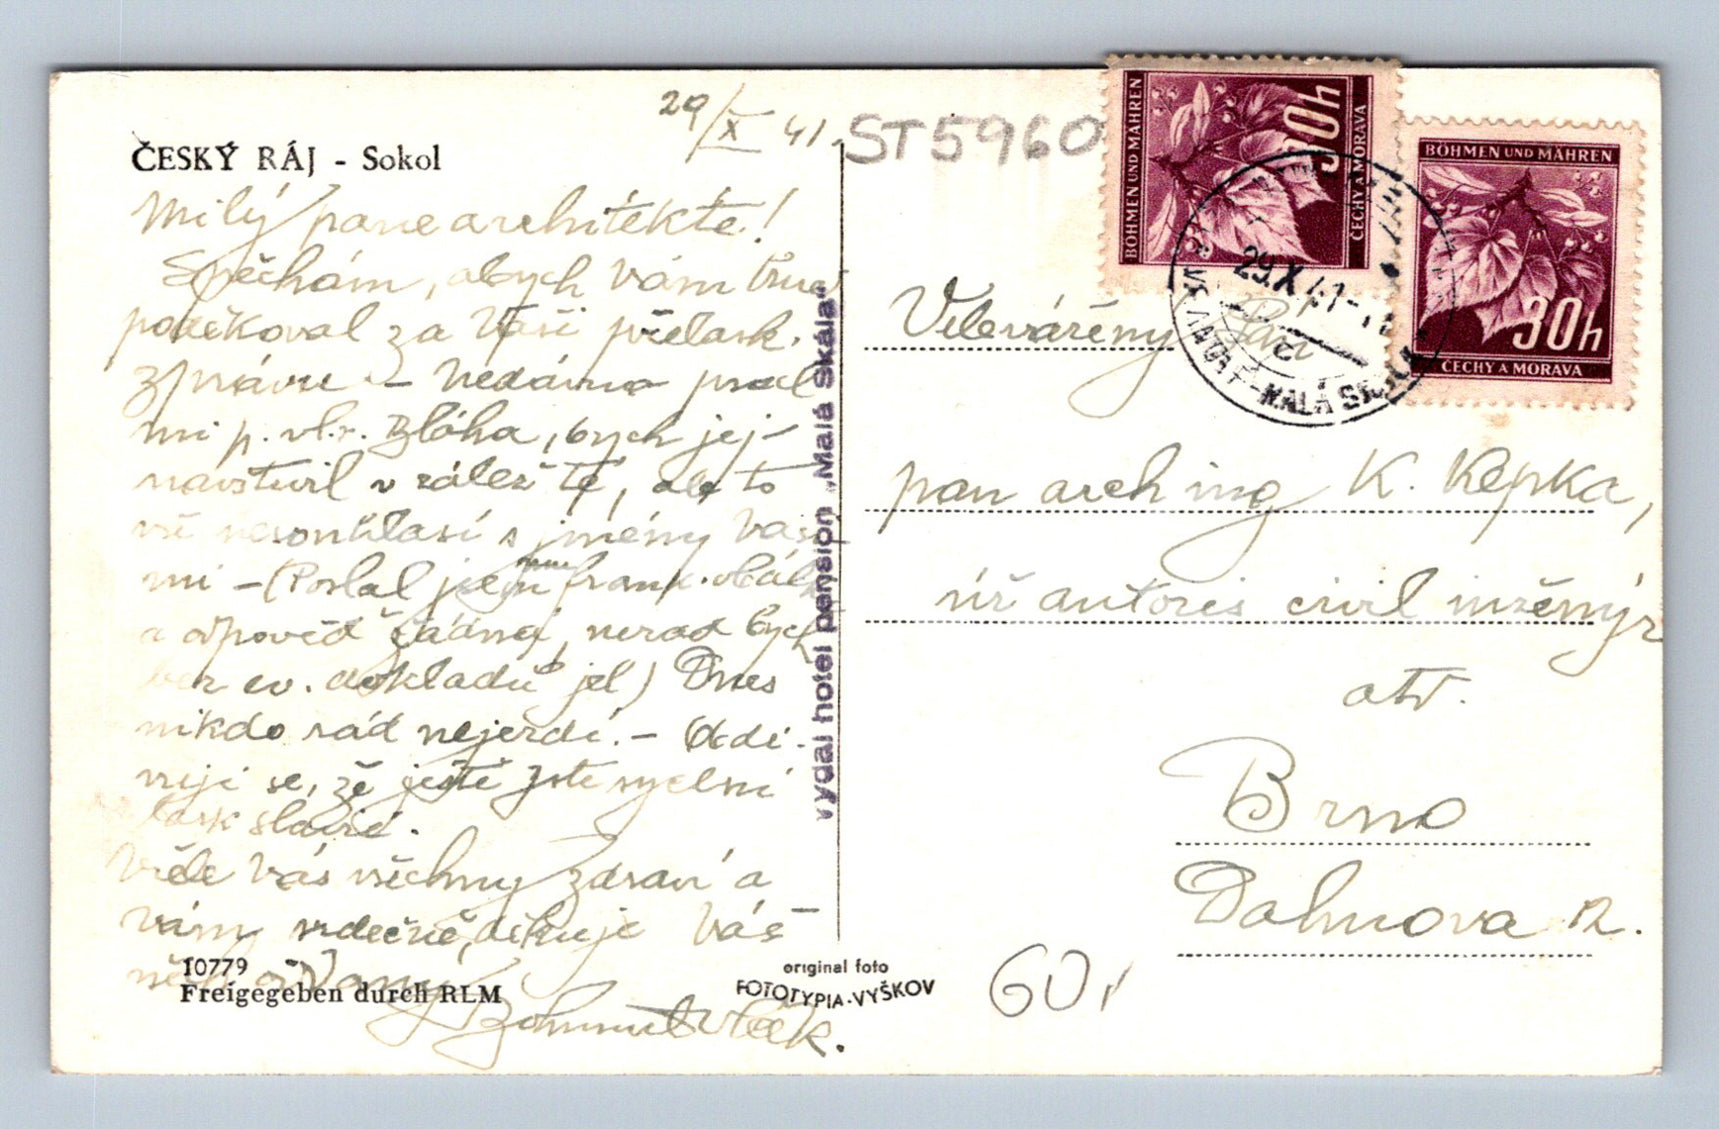 29/X 41.
ST5960
ČESKÝ RÁJ - Sokol
Milý pane architekte!
Spěchám, abych Vám
poděkoval za Vaši přelask.
zprávu - Nedávno
mi p. Bláha, bych jej
navštívil v zálež té, ale to
vše nesouhlasí s jmény Vaši
mi - (Poslal jsem frank. obálk
a odpověď žádná, nerad bych
bez ev. dokladů jel) Dnes
nikdo rád nejezdí. - Podi-
vuji se, že ještě jste
Vřele Vás všechny zdraví a
Vám srdečně děkuje Váš
10779
Freigegeben durch RLM
vydal hotel pension "Malá Skála"
original foto
FOTOTYPIA-VYŠKOV
BÖHMEN UND MÄHREN
30h
ČECHY A MORAVA
BÖHMEN UND MÄHREN
30h
ČECHY A MORAVA
29.X 41
MALÁ SKÁLA
Velevážený Pan
pan arch ing K. Kepka,
úř autoris civil inženýr
atd.
Brno
Dahmova n.
60,